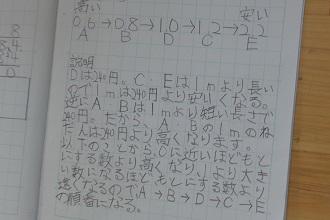 高い
安い
0.6→0.8→1.0→1.2→2.2
A B D C E
説明
Dは240円。C・Eは1mより長い
ので1mは240円より安くなる。
逆にA・Bは1mより短い長さで
240円。だから、A・Bの1mのね
だんは240円より高くなります。
以下のことから、0に近いほどもと
にする数より高くなり、1より大き
い数になるほどもとにする数より
なるのでA→B→D→C→E
の順番になる。